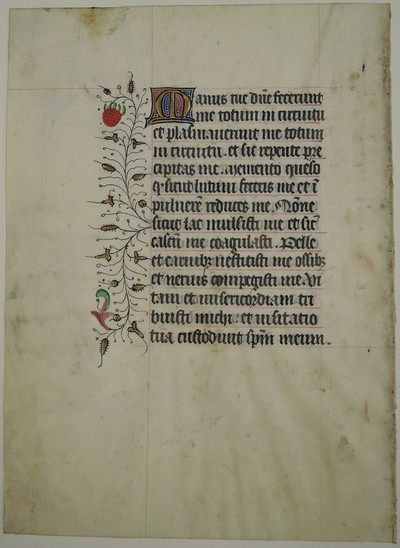 Manus tue dñe fecerunt
me totum in circuitu
et plasmaverunt me totum
in circuitu. et sic repente pre
cipitas me. Memento queso
q sicut lutum feceris me et ĩ
pulverẽ reduces me. Nõne
sicut lac mulsisti me et sic̃
caseũ me coagulasti. Pelle
et carnibz vestisti me ossibz
et nervis compegisti me. Vi
tam et misericordiam tri
buisti michi: et visitatio
tua custodivit spm̃ meum.